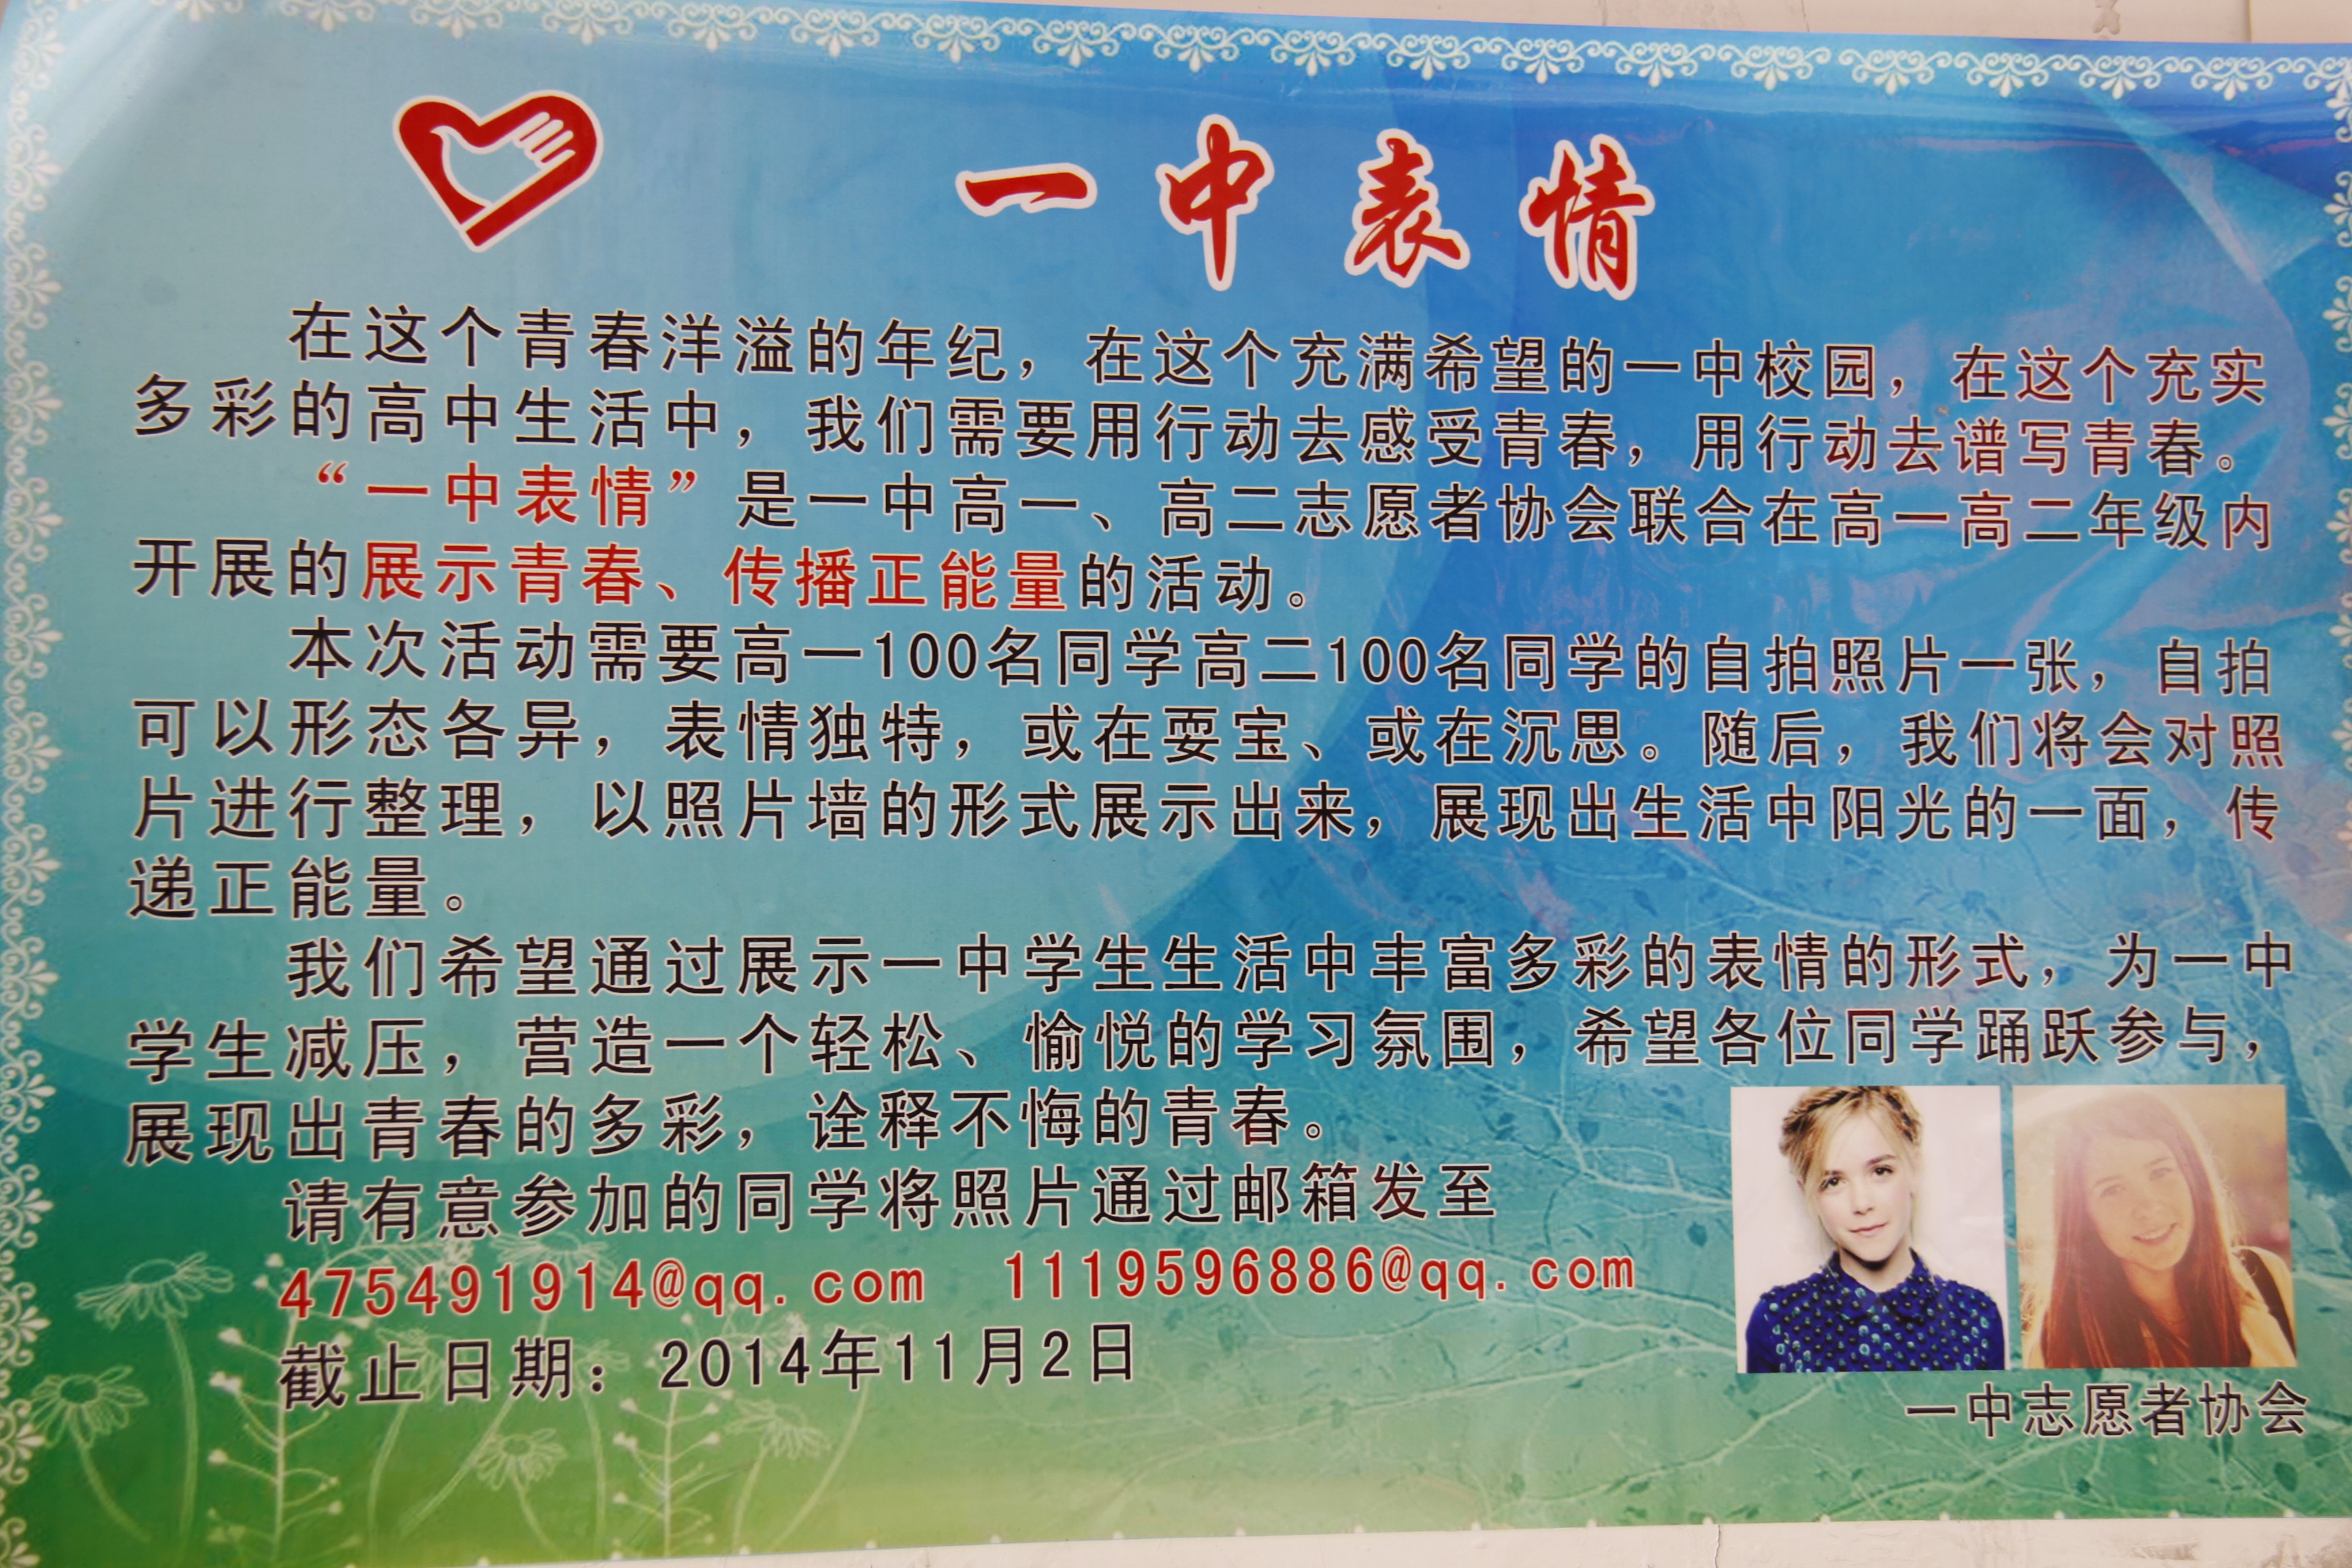 一中表情
在这个青春洋溢的年纪，在这个充满希望的一中校园，在这个充实
多彩的高中生活中，我们需要用行动去感受青春，用行动去谱写青春。
“一中表情”是一中高一、高二志愿者协会联合在高一高二年级内
开展的展示青春、传播正能量的活动。
本次活动需要高一100名同学高二100名同学的自拍照片一张，自拍
可以形态各异，表情独特，或在耍宝、或在沉思。随后，我们将会对照
片进行整理，以照片墙的形式展示出来，展现出生活中阳光的一面，传
递正能量。
我们希望通过展示一中学生生活中丰富多彩的表情的形式，为一中
学生减压，营造一个轻松、愉悦的学习氛围，希望各位同学踊跃参与，
展现出青春的多彩，诠释不悔的青春。
请有意参加的同学将照片通过邮箱发至
475491914@qq.com 1119596886@qq.com
截止日期：2014年11月2日
一中志愿者协会